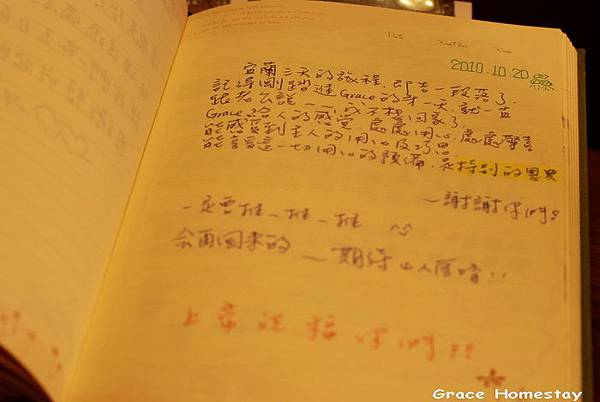 2010.10.20
宜蘭三天的旅程，即告一段落了，
記得剛踏進Grace的第一天，就一直
跟老公說～～我不想回家了
Grace給人的感覺，處處用心，處處驚喜
能感受到主人的用心及巧思
能享受這一切用心的預備，是特別的恩典
～謝謝你們！
一定要推一推一推 ^^
會再回來的～期待
上帝祝福你們！！
Grace Homestay